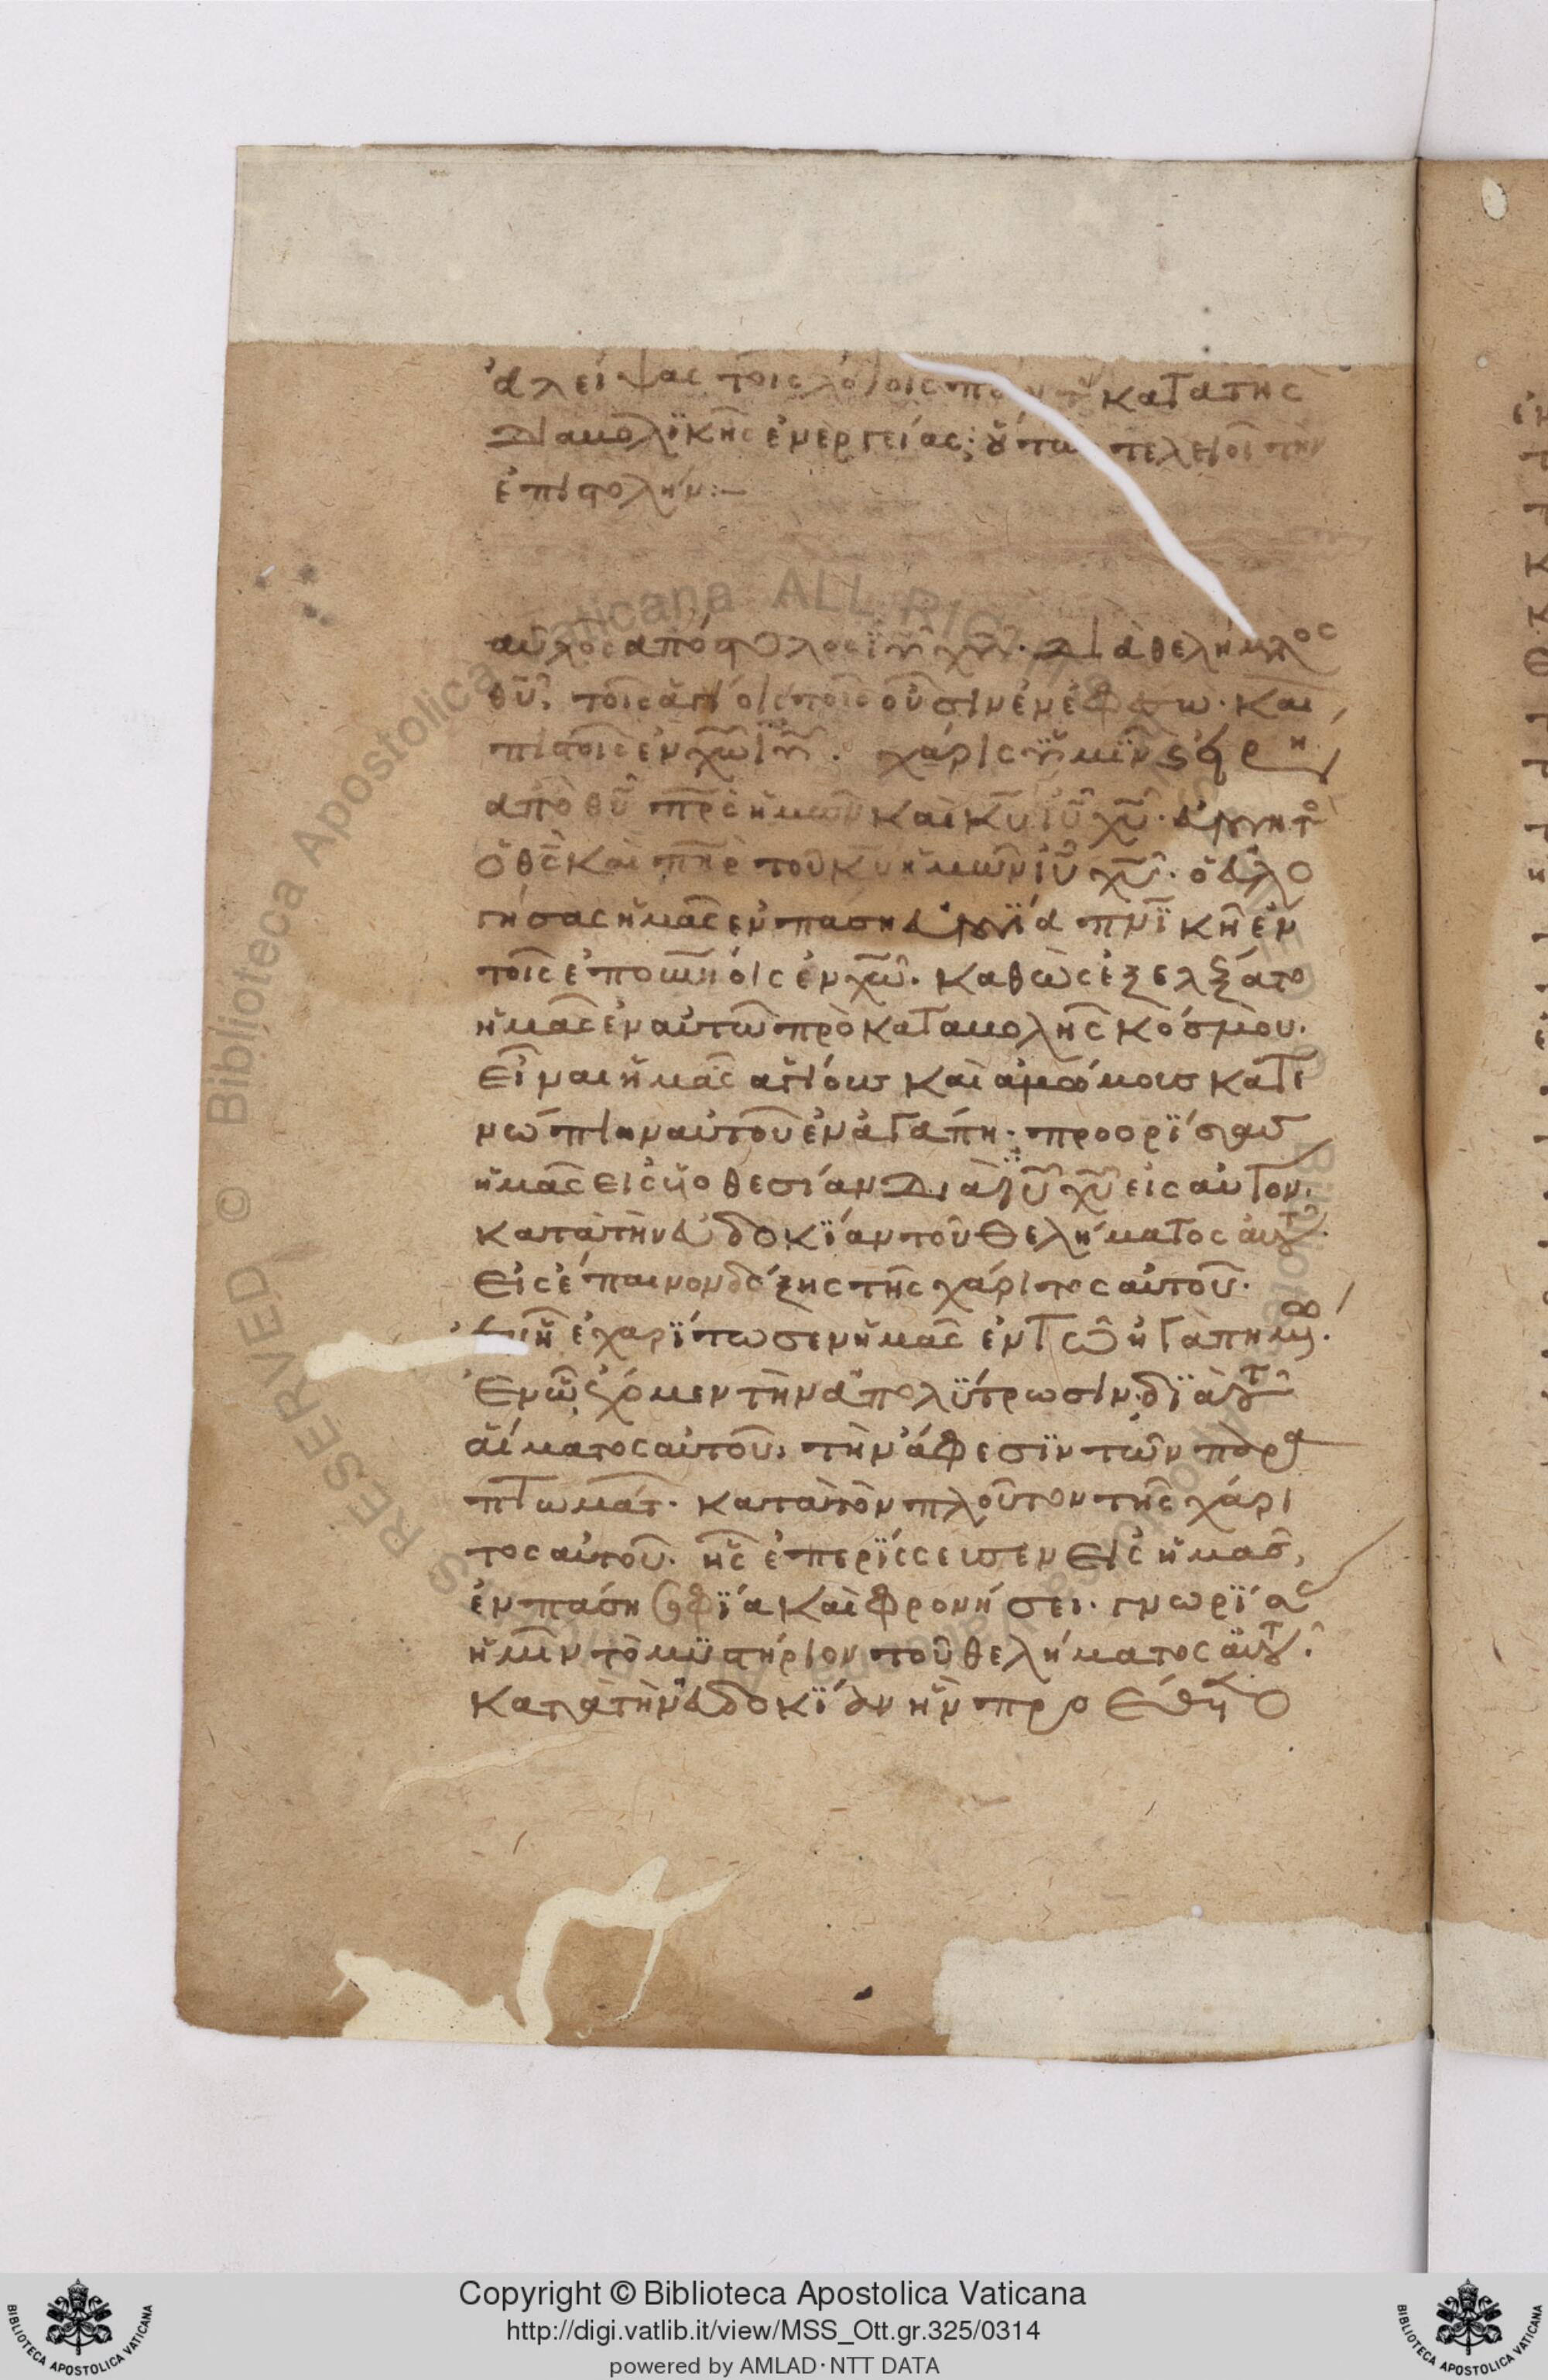 ἀλείψας τοῖς λόγοις κατὰ τῆς
διαβολϊκῆς ἐνεργείας· οὕτω τελειοῖ τὴν
ἐπιστολήν:—
αῦλος ἀπόστολος ϊῦ χῦ· διὰ θελήματος
θῦ, τοῖς ἁγίοις τοῖς οὖσιν ἐν ἐφέσω· καὶ
πιστοῖς ἐν χῶ ιῦ. χάρις ὑμῖν καὶ εἰρήνη
ἀπὸ θῦ πρς ἡμῶν καὶ κυ ἰῦ χῦ· εὐλογητὸς
ὁ θς καὶ πηρ τοῦ κυ ἡμῶν ἰῦ χῦ· ὁ εὐλο
γήσας ἡμᾶς ἐν πάση εὐλογία πνϊκῆ ἐν
τοῖς ἐπουνίοις ἐν χῶ· καθὼς ἐξελέξατο
ἡμᾶς ἐν αὐτῶ πρὸ καταβολῆς κόσμου·
εἶναι ἡμᾶς ἁγίους καὶ ἀμώμους κατε
νώπιον αὐτοῦ ἐν ἀγάπη· προορίσας
ἡμᾶς εἰς υἱοθεσίαν διὰ ἰῦ χῦ εἰς αὐτόν·
κατὰ τὴν εὐδοκϊαν τοῦ θελήματος αὐτοῦ·
εἰς ἔπαινον δόξης τῆς χάριτος αὐτοῦ·
ἐν ἧ ἐχαρϊτωσεν ἡμᾶς ἐν τῶ ἠγαπημένω·
ἐν ὧ ἔχομεν τὴν ἀπολύτρωσιν· δϊὰ τοῦ
αἵματος αὐτοῦ, τὴν ἄφεσϊν τῶν παρα
πτωμάτ· κατὰ τὸν πλοῦτον τῆς χάρι
τος αὐτοῦ· ἧς ἐπερϊσσευσεν εἰς ἡμᾶς,
ἐν πάση σοφϊα καὶ φρονήσει· γνωρϊσας
ἡμῖν τὸ μυστήριον τοῦ θελήματος αὐτοῦ·
κατὰ τὴν εὐδοκϊαν ἣν προέθετο
© Biblioteca Apostolica Vaticana ALL RIGHTS RESERVED
Copyright © Biblioteca Apostolica Vaticana
http://digi.vatlib.it/view/MSS_Ott.gr.325/0314
powered by AMLAD·NTT DATA
BIBLIOTECA APOSTOLICA VATICANA
BIBLIOTECA APOSTOLICA VATICANA